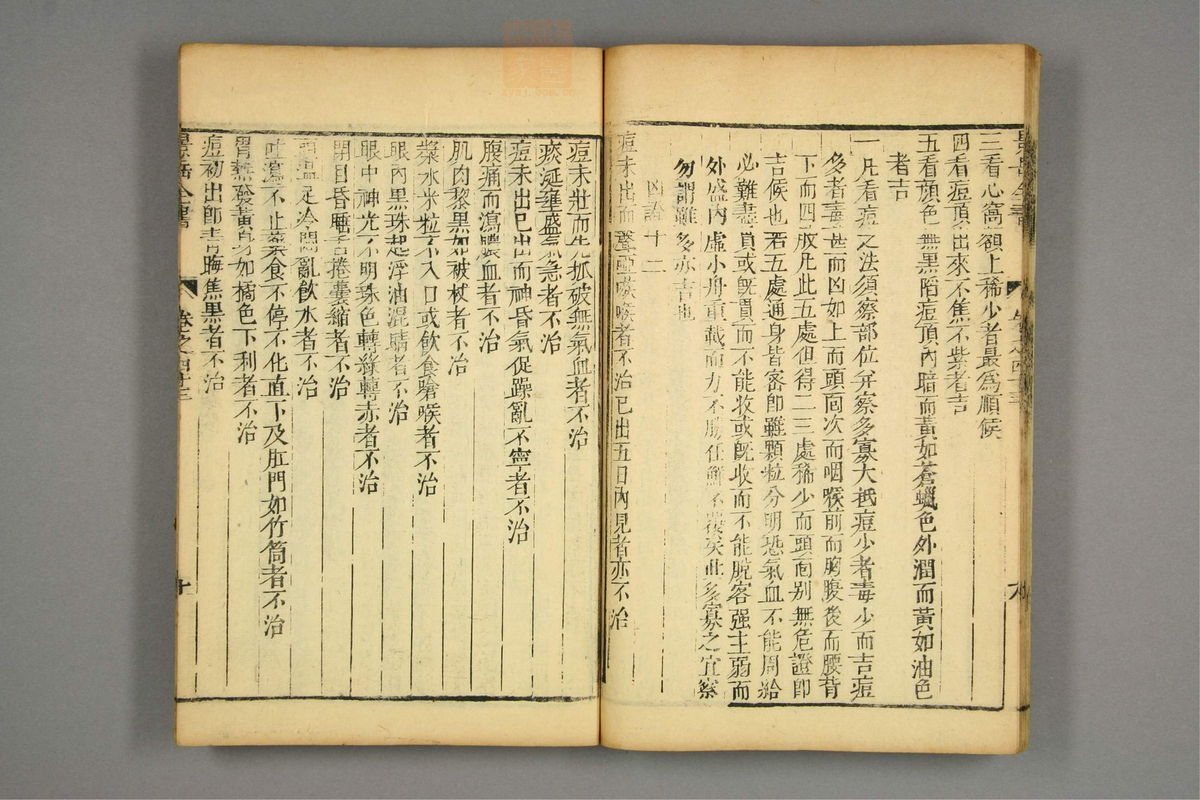 三看心窩額上稀少者最爲順候
四看痘頂出來不焦不紫者吉
五看顏色無黑陷痘頂內暗而黃如蒼蠟色外潤而黃如油色
者吉
一凡看痘之法須察部位并察多寡大抵痘少者毒少而吉痘
多者毒甚而凶如上而頭面次而咽喉前而胸腹後而腰背
下而四肢凡此五處但得二三處稀少而頭面别無危證即
吉候也若五處通身皆密即雖顆粒分明恐氣血不能周給
必難盡貫或旣貫而不能收或旣收而不能脫客强主弱而
外盛內虛小舟重載而力不勝任鮮不覆矣此多寡之宜察
勿謂雖多亦吉也
凶證十二
痘未出而聲啞喉者不治已出五日內見者亦不治
痘未壯而先抓破無氣血者不治
痰涎壅盛氣急者不治
痘未出已出而神昏氣促躁亂不寧者不治
腹痛而瀉膿血者不治
肌肉黎黑如被杖者不治
漿水米粒不入口或飲食嗆喉者不治
眼內黑珠起浮油混睛者不治
眼中神光不明珠色轉綠轉赤者不治
閉目昏睡舌捲囊縮者不治
足冷悶亂飲水者不治
吐瀉不止藥食不停不化直下及肛門如竹筒者不治
胃熱發黃身如橘色下利者不治
痘初出即青晦焦黑者不治
景岳全書
卷之四十三
十